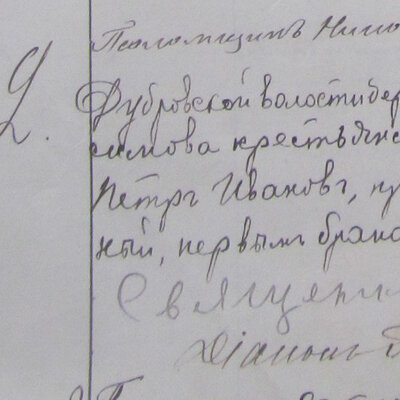 Псаломщикъ Нико
2.
Дубровской волости дер
симова крестьянс
Петръ Ивановъ, пр
ный, первымъ брако
Священни
Діаконъ